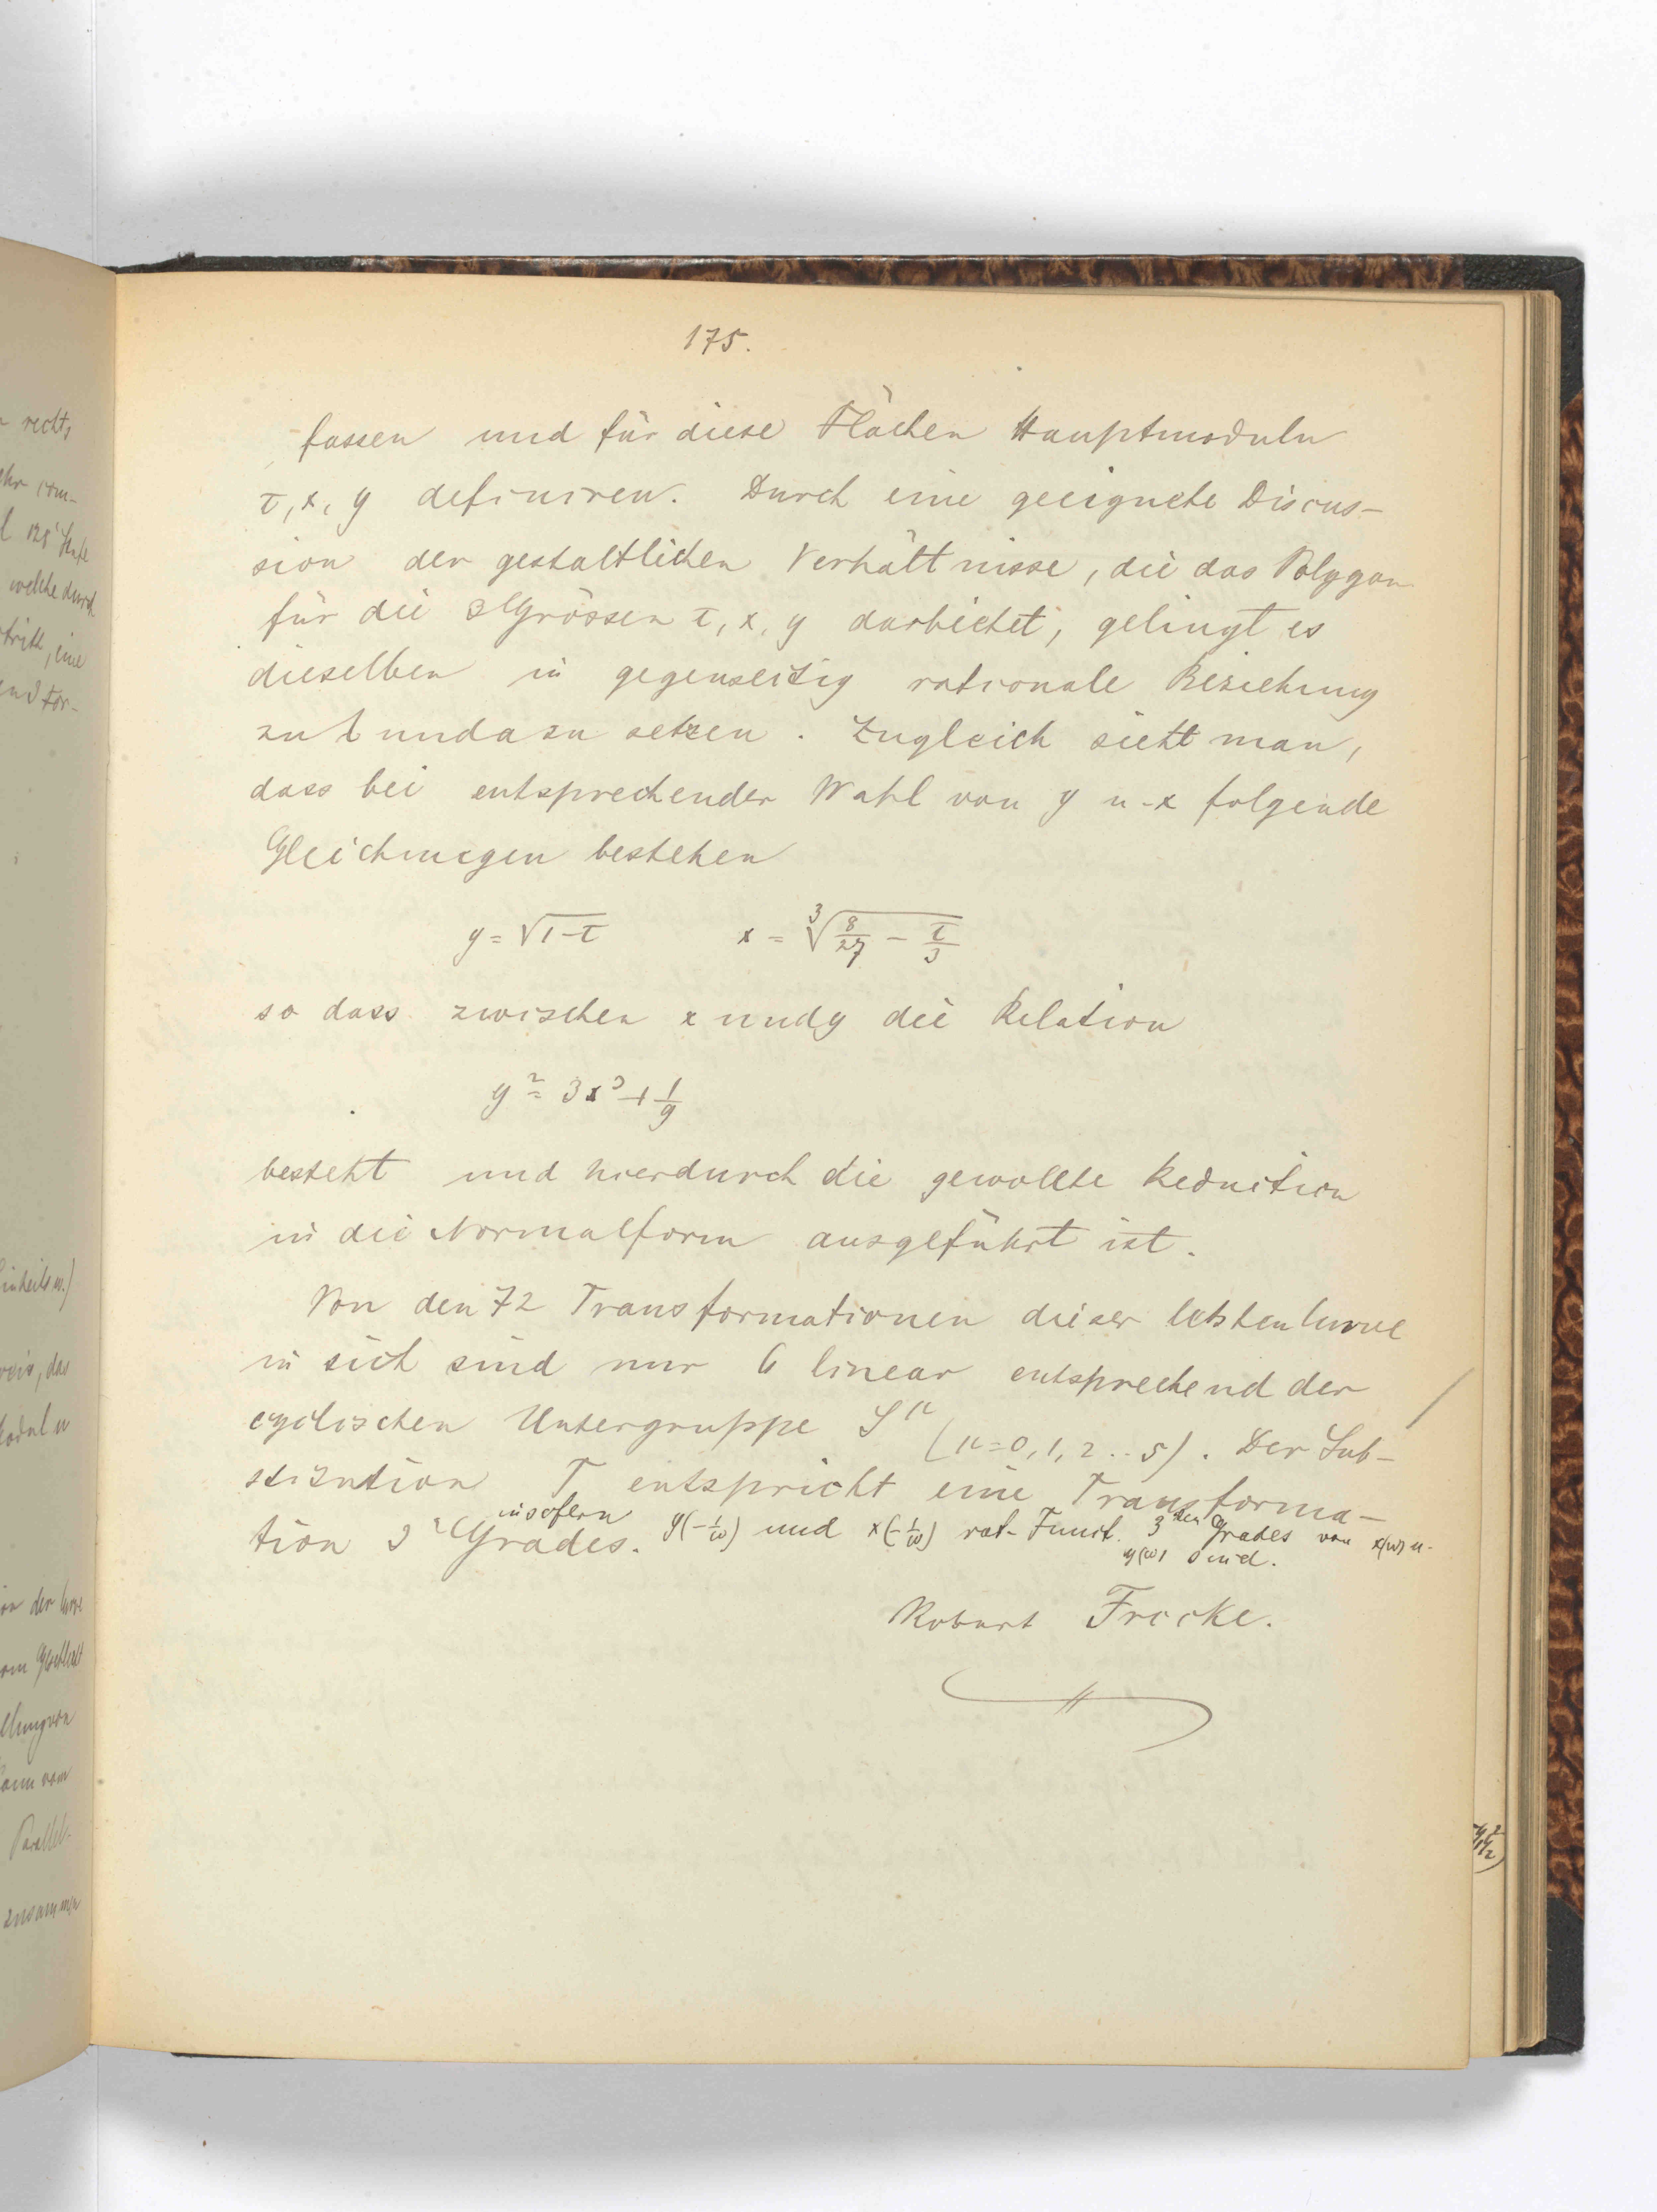 175.
fassen und für diese Flächen Hauptmoduln
τ, x, y definiren. Durch eine geeignete Discus-
sion der gestaltlichen Verhältnisse, die das Polygon
für die 3 Grössen τ, x, y darbietet, gelingt es
dieselben in gegenseitig rationale Beziehung
zu b und a zu setzen. Zugleich sieht man,
dass bei entsprechender Wahl von y u. x folgende
Gleichungen bestehen
y = √(1-τ) x = ∛(8/27 - τ/3)
so dass zwischen x und y die Relation
y² = 3x³ + 1/9
besteht und hierdurch die gewollte Reduction
in die Normalform ausgeführt ist.
Von den 72 Transformationen dieser letzten Curve
in sich sind nur 6 linear entsprechend der
cyclischen Untergruppe S^μ (μ=0, 1, 2 .. 5). Der Sub-
stitution T entspricht eine Transforma-
tion 3ten Grades. insofern y(-1/ω) und x(-1/ω) rat. Funct. 3ten Grades von x(ω) u.
y(ω) sind.
Robert Fricke.
rechts
welche durch
eine
das
Parallel-
zusammen